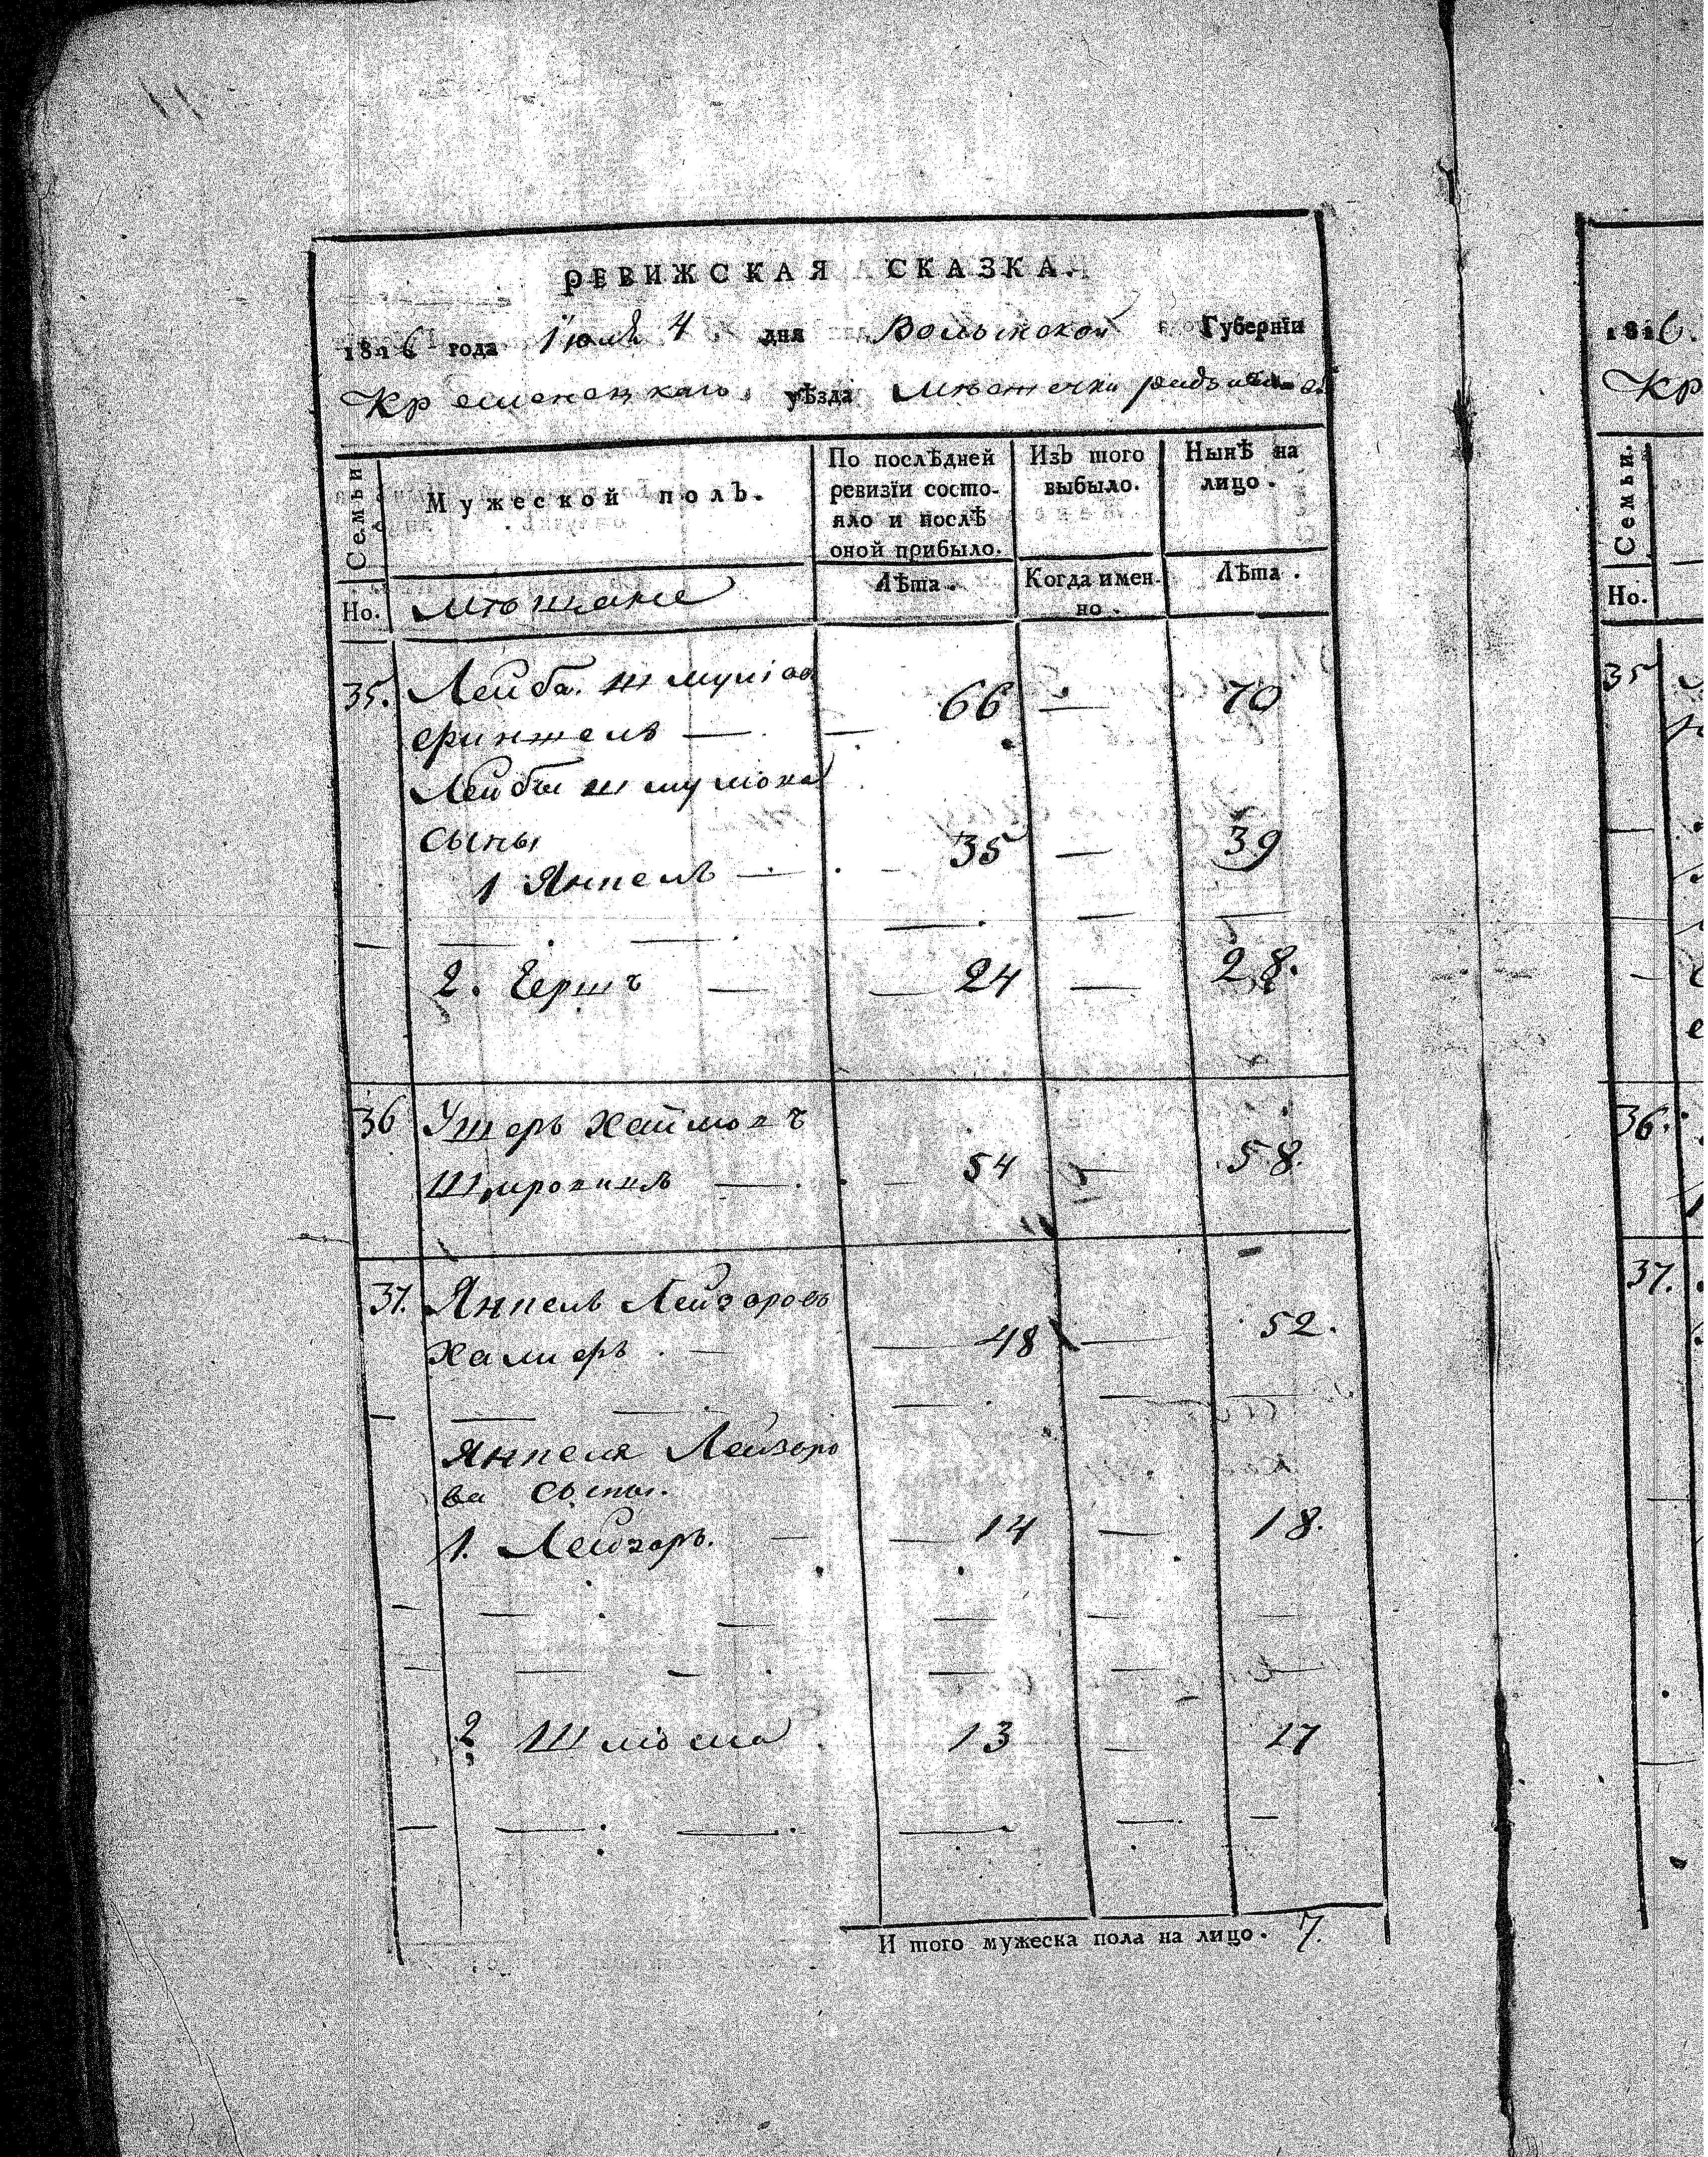 РЕВИЖСКАЯ СКАЗКА.
1816 года Iюля 4 дня Волынской Губернїи
Кременецкаго уѣзда Мѣстечки
Семьи
Мужеской полъ.
По послѣдней ревизїи состо-
яло и послѣ
оной прибыло.
Изъ того
выбыло.
Нынѣ на
лицо.
Но.
мѣщане
Лѣта.
Когда имен-
но.
Лѣта.
35. Лейба Шмулiов
Финкель — 66 — 70
Лейбы Шмулiова
сыны
1 Янкель — 35 — 39
2. Гершъ — 24 — 28.
36 Ушеръ Хаймовъ
— 54 — 58.
37. Янкель Лейзоровъ
— 48 — 52.
Янкеля Лейзоро
ва сыны.
1. Лейзоръ. — 14 — 18.
2 Шлiома 13 — 17
И того мужеска пола на лицо. 7.
1816.
Кр
Семьи.
Но.
35
36.
37.